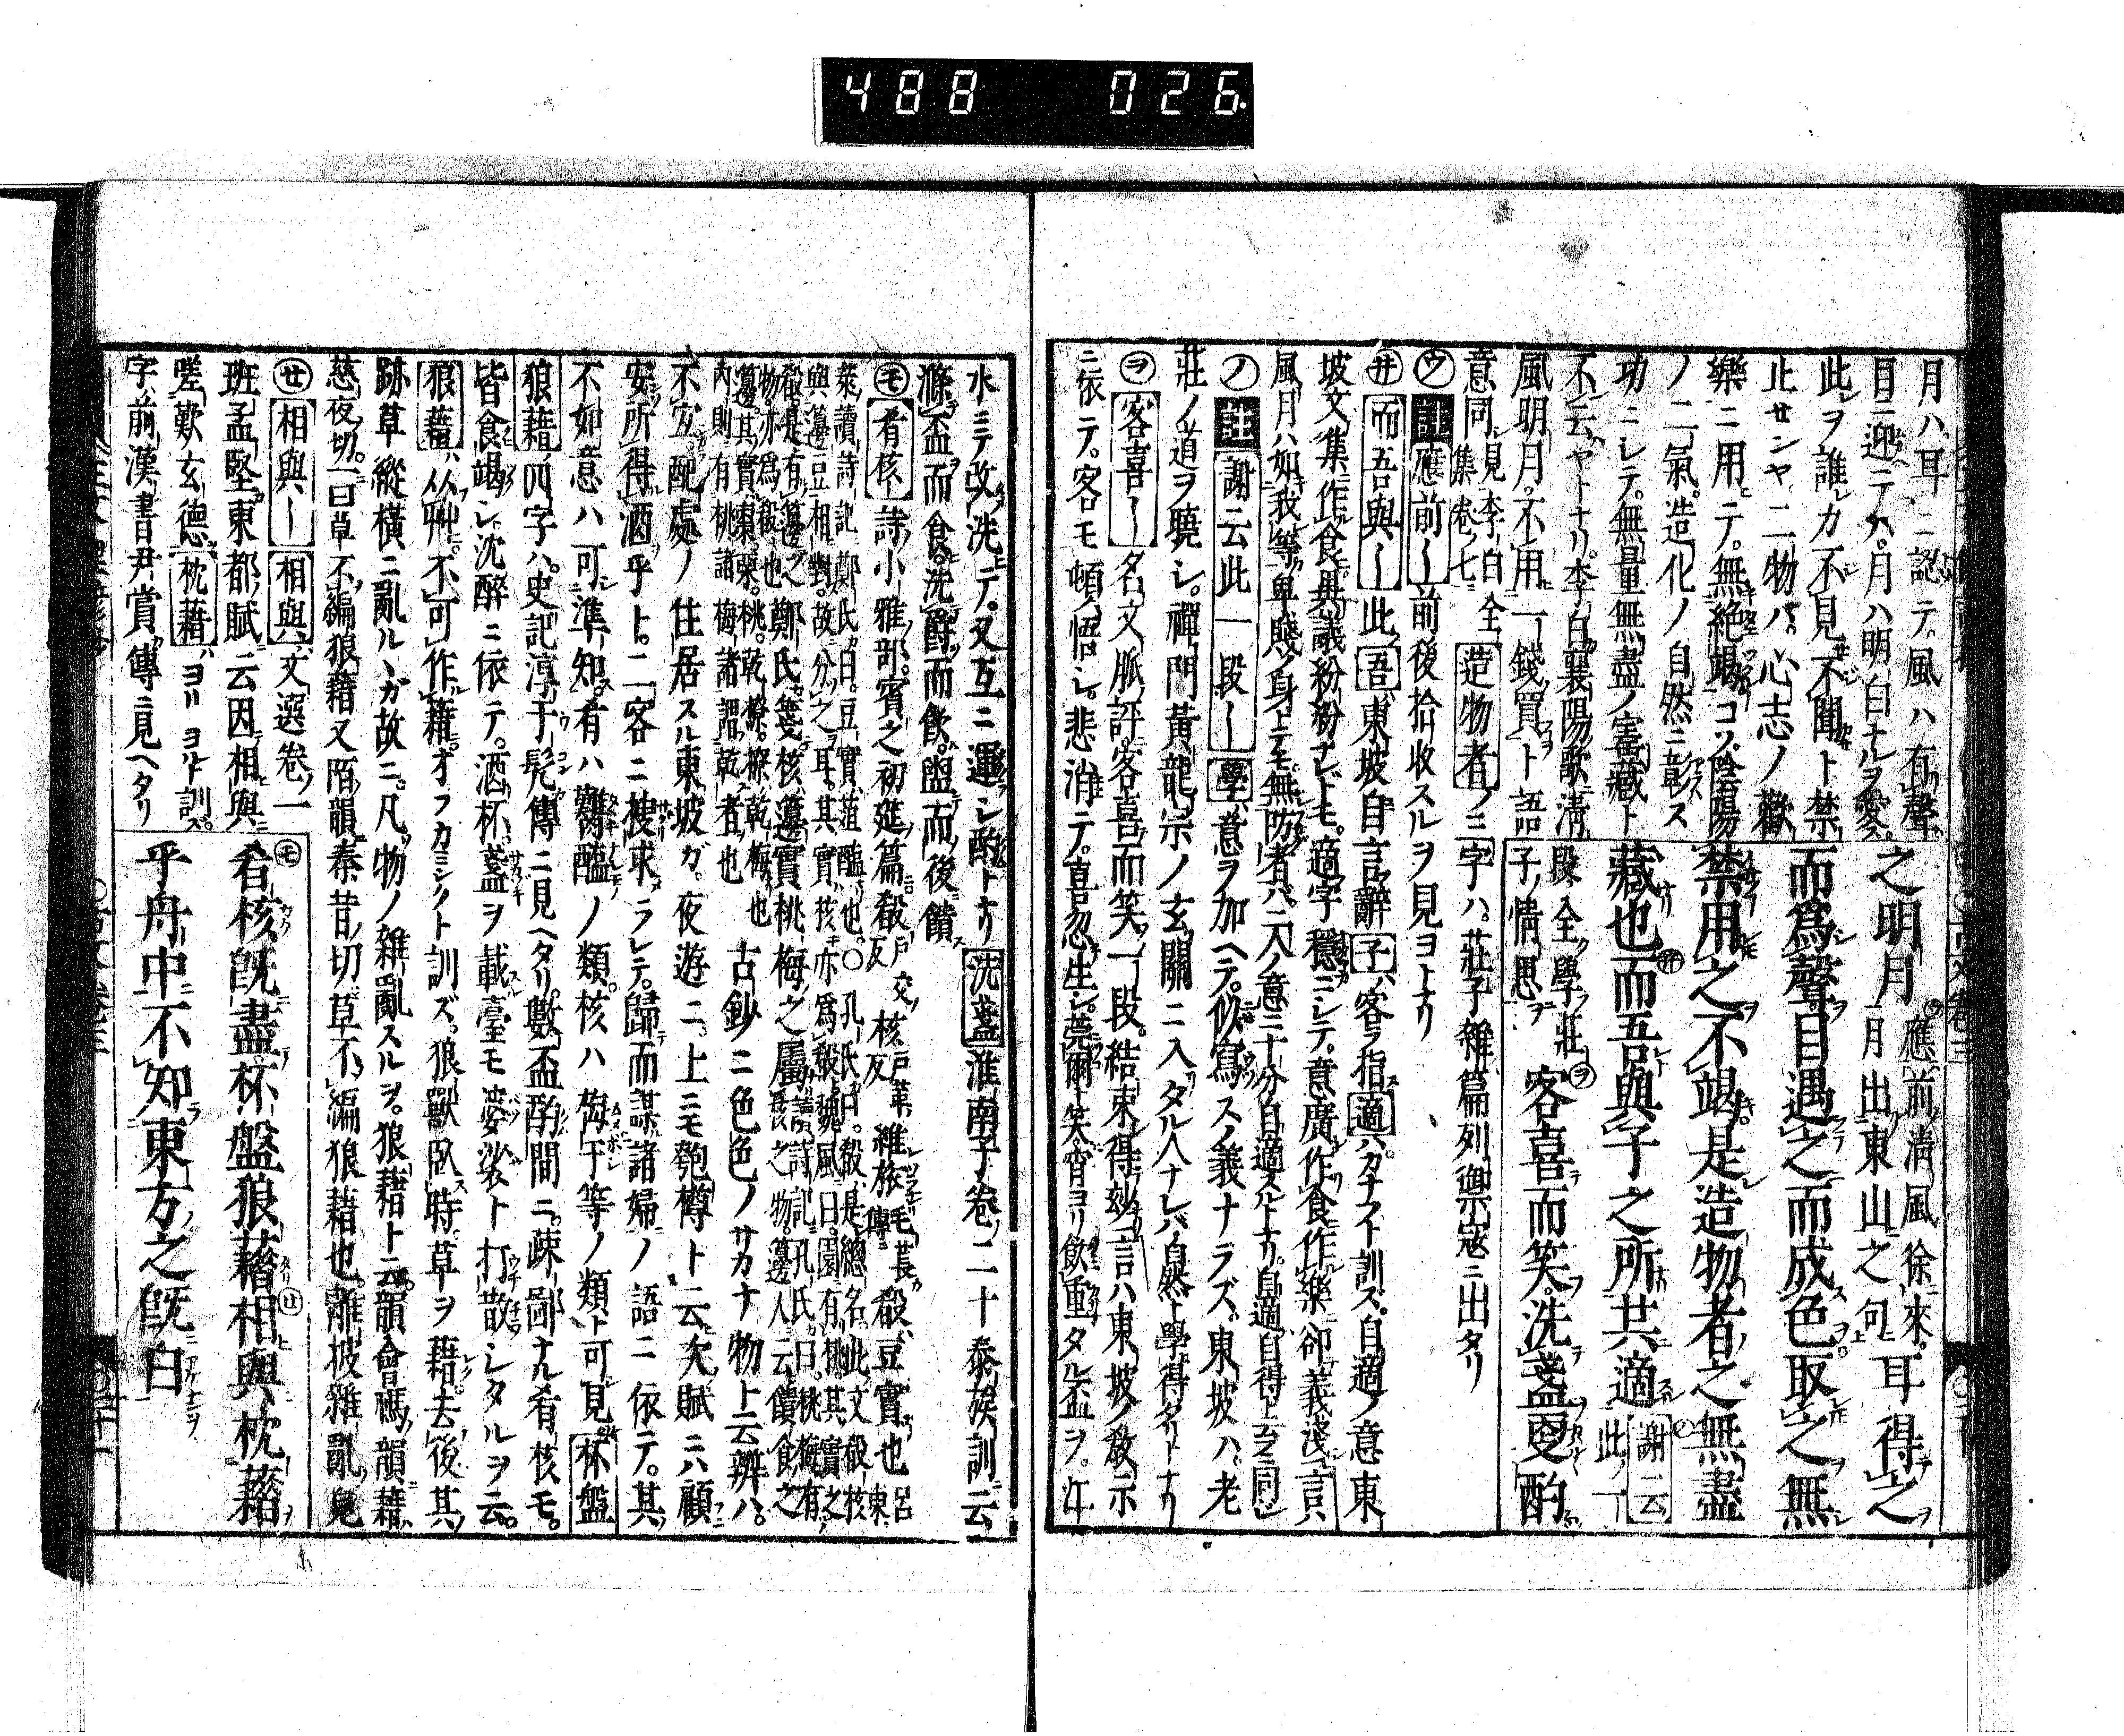 488 026
月ハ耳ニ認テ風ハ有聲
目ニ迎ニテハ月ハ明白ナルヲ愛ス
此ヲ誰カ不見不聞ト禁
止センヤ二物ハ心志ノ歡
樂ニ用テ無絶竭コヿ陰陽
ノ二氣造化ノ自然ニ彰ス
功ニシテ無量無盡ノ寳藏ト
不云ヤトナリ李白襄陽歌清
風明月不用一錢買ト語
意同見李白全集卷七 造物者ノ三字ハ莊子雜篇列禦寇ニ出タリ
之明月 應前清風徐來月出東山之句 耳得之
而爲聲目遇之而成色取之無
禁用之不竭是造物者之無盡
藏也而吾與子之所共適 謝云此一
段全學莊子情思 客喜而笑洗盞更酌
ウ 註 應前｜前後拾收スルヲ見ヨトナリ
井 而吾與｜此吾東坡自言辭子客ヲ指適ハカナフト訓ス自適ノ意東
坡文集作食異議紛紛ナレドモ適字穩ニシテ意廣作食作樂卻義淺言
風月ハ如我等卑賤ノ身ニテモ無防者バ二人ノ意ニ十分自適スルトナリ自適自得ト云ニ同シ
ノ 註 謝云此一段｜學意ヲ加ヘテ似寫スノ義ナラズ東坡ハ老
莊ノ道ヲ曉シ禪門黃龍宗ノ玄關ニ入タル人ナレバ自然ト學得タリトナリ
ヲ 客喜｜名文脈評客喜而笑一段結束得玅言ハ東坡ノ敎示
ニ依テ客モ頓悟シ悲消テ喜忽生シ莞爾笑宵ヨリ飮重タル盃ヲ江
水ニテ改洗テ又互ニ運シ酌トナリ 洗盞 淮南子卷二十泰族訓云
滌盃而食洗爵而飮盥而後饋
モ 肴核｜詩小雅部賓之初筵篇殽核維旅毛萇傳殽豆實也
不宜配處ノ住居スル東坡ガ夜遊ニ上ニモ匏樽ト云次賦ニハ顧
安所得酒乎ト二客ニ搜求ラレテ歸而謀諸婦ノ語ニ依テ其
不如意ハ可準知有ハ鶏醢ノ類核ハ梅干等ノ類ト可見 杯盤
狼藉四字ハ史記淳于髡傳ニ見ヘタリ數盃酌間ニ疎鄙ナル肴核モ
皆食竭シ沈醉ニ依テ酒杯盞ヲ載臺モ婆娑ト打散シタルヲ云
狼藉从艸不可作籍オフカミシクト訓ズ狼獸臥時草ヲ藉去後其
跡草縱橫ニ亂ルヽガ故ニ凡物ノ雜亂スルヲ狼藉ト云韻會禡韻藉
慈夜切一曰草不編狼藉又陌韻秦昔切草不編狼藉也離披雜亂皃
世 相與｜相與文選卷一
班孟堅東都賦云因相與
嗟歎玄德 枕藉ヨリヨルト訓ズ
字前漢書尹賞傳ニ見ヘタリ
肴核既盡杯盤狼藉相與枕藉
乎舟中不知東方之既白